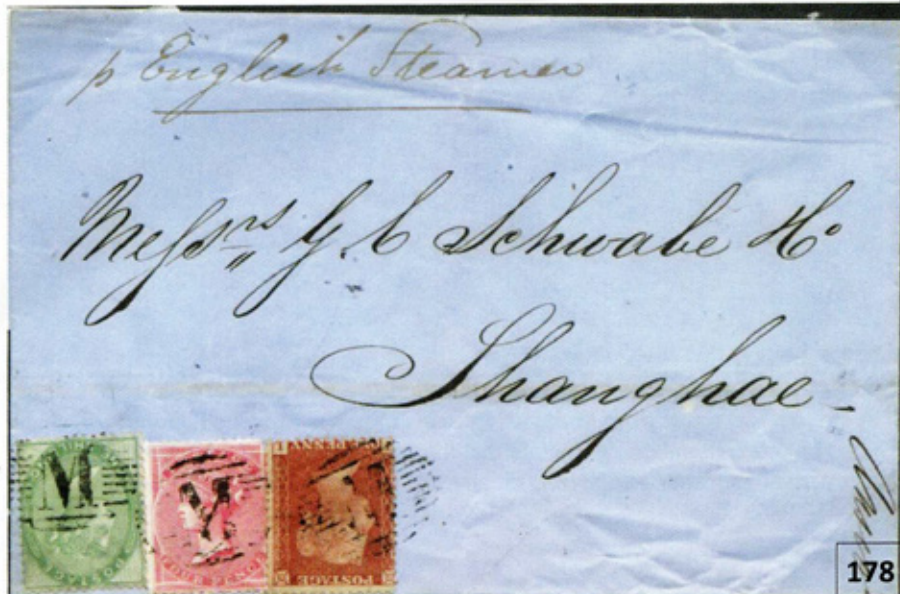 p English Steamer
Messrs G. C Schwabe & Co
Shanghae
M
FOUR PENCE
POSTAGE
178